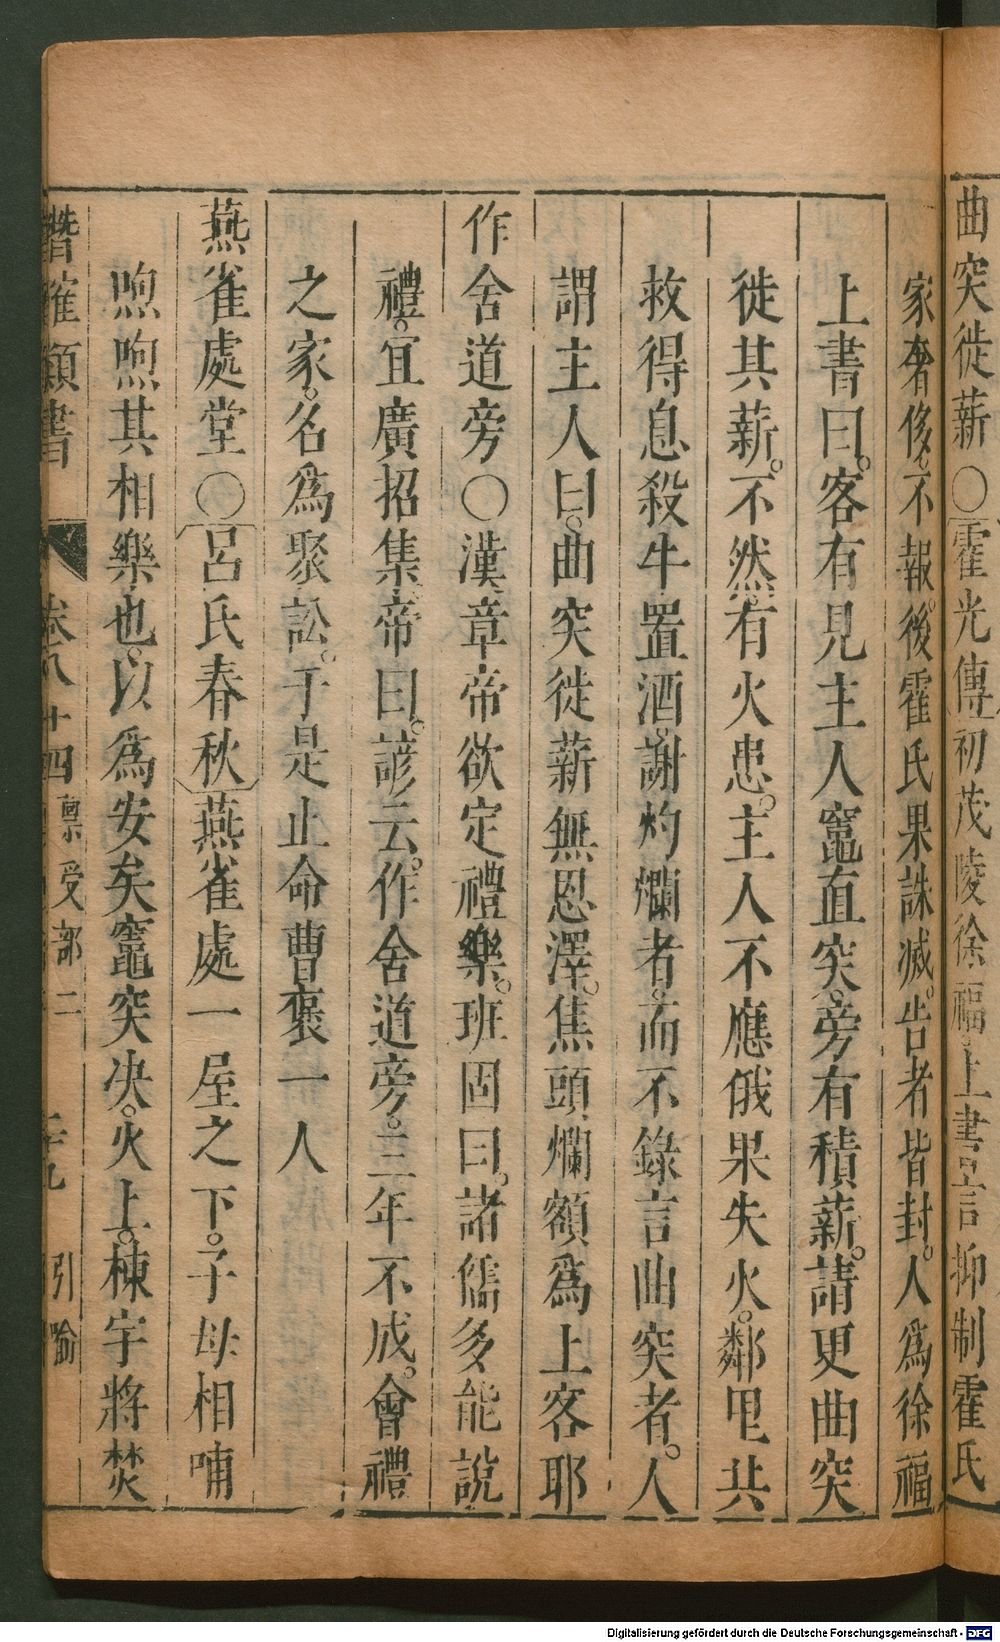 曲突徙薪〇霍光傳初茂陵徐福上書言抑制霍氏
家奢侈。不報。後霍氏果誅滅。告者皆封。人爲徐福
上書曰。客有見主人竈直突。旁有積薪。請更曲突
徙其薪。不然。有火患。主人不應俄果失火。鄰里共
救得息殺牛置酒。謝灼爛者。而不錄言曲突者。人
謂主人曰。曲突徙薪無恩澤。焦頭爛額爲上客耶
作舍道旁〇漢章帝欲定禮樂。班固曰。諸儒多能說
禮。宜廣招集。帝曰。諺云。作舍道旁。三年不成。會禮
之家。名爲聚訟。于是止命曹褒一人
燕雀處堂〇呂氏春秋燕雀處一屋之下。子母相哺
煦煦其相樂也。以爲安矣竈突決。火上。棟宇將焚
類書 卷八十四 稟受部二 二十九 引喻
Digitalisierung gefördert durch die Deutsche Forschungsgemeinschaft - DFG